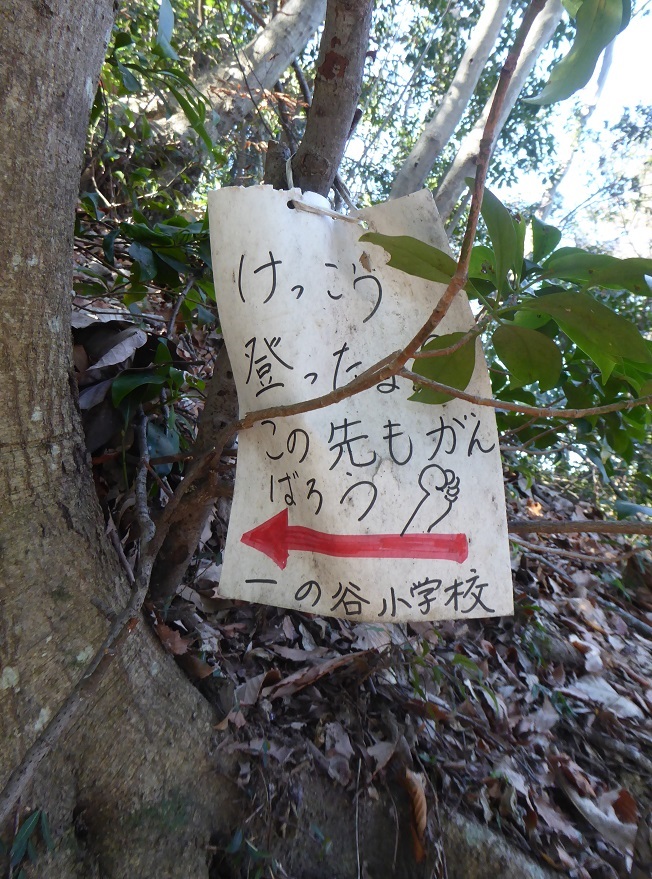 けっこう
登ったよ
この先もがん
ばろう
一の谷小学校